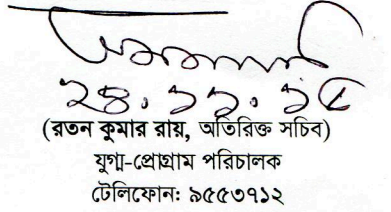 ২৪.১১.১৫
(রতন কুমার রায়, অতিরিক্ত সচিব)
যুগ্ম-প্রোগ্রাম পরিচালক
টেলিফোন: ৯৫৫৩৭১২